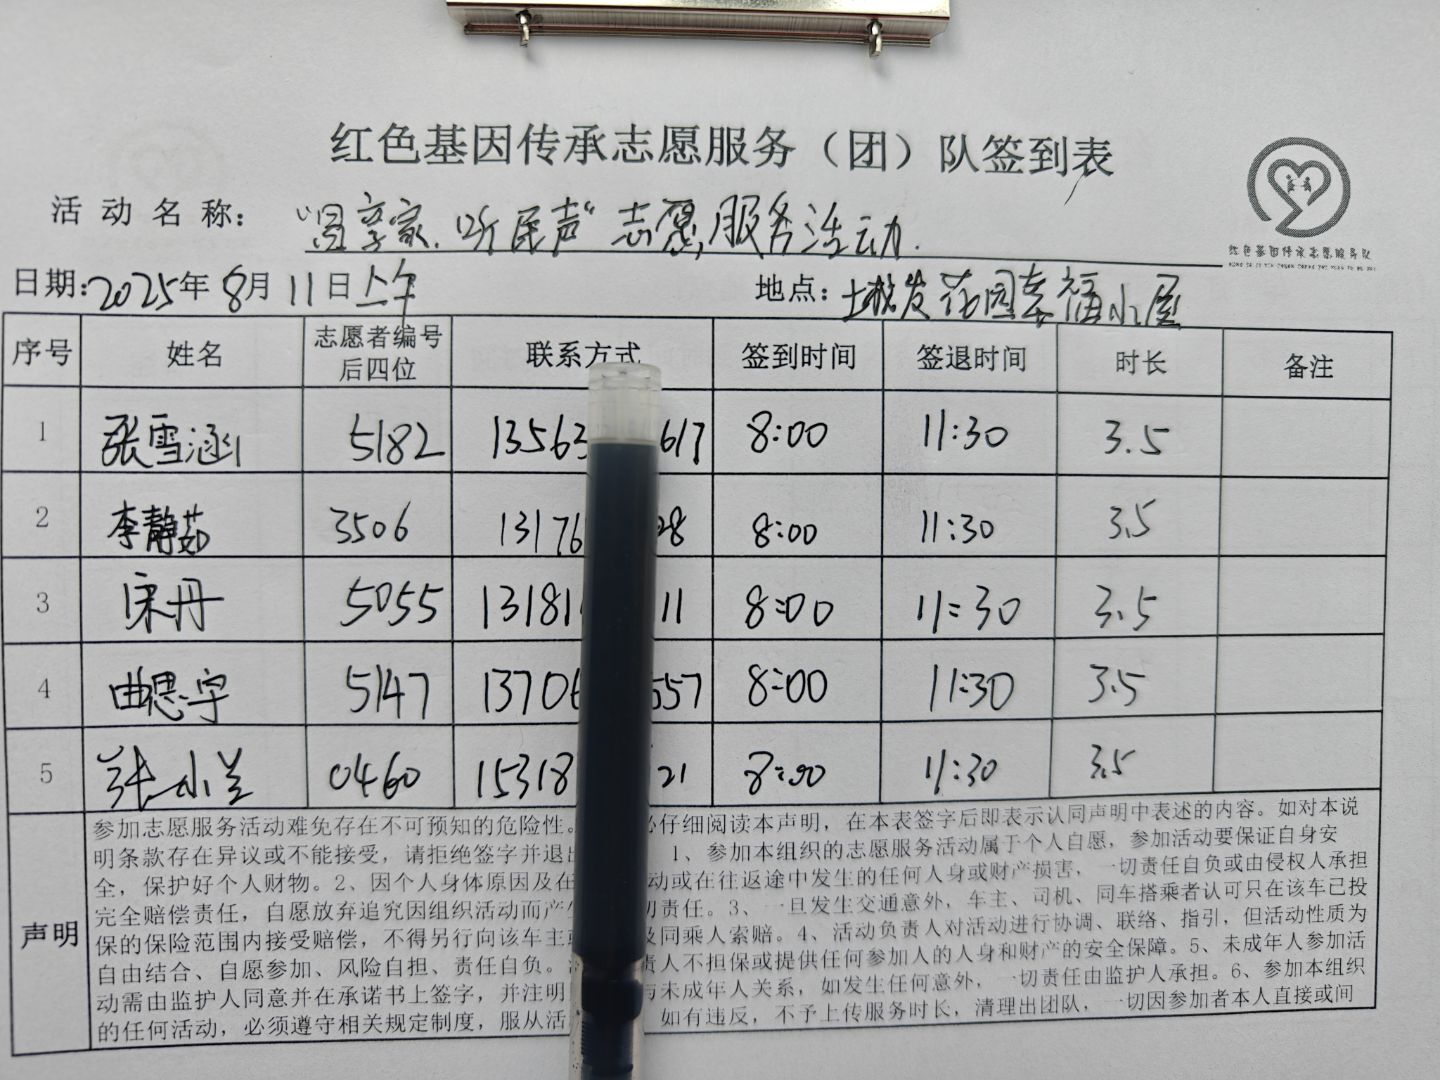 红色基因传承志愿服务（团）队签到表
活动名称： 享家.听民声" 志愿服务活动.
红色基因传承志愿服务队
日期:2025年8月11日上午 地点: 花园幸福小屋
序号 姓名 志愿者编号后四位 联系方式 签到时间 签退时间 时长 备注
1 张雪涵 5182 13563 617 8:00 11:30 3.5
2 李静茹 3506 13176 28 8:00 11:30 3.5
3 宋丹 5055 13181 11 8:00 11:30 3.5
4 曲思宇 5147 13706 557 8:00 11:30 3.5
5 张小兰 0460 15318 21 8:00 11:30 3.5
声明
参加志愿服务活动难免存在不可预知的危险性。 必仔细阅读本声明，在本表签字后即表示认同声明中表述的内容。如对本说
明条款存在异议或不能接受，请拒绝签字并退出 1、参加本组织的志愿服务活动属于个人自愿，参加活动要保证自身安
全，保护好个人财物。2、因个人身体原因及在 动或在往返途中发生的任何人身或财产损害，一切责任自负或由侵权人承担
完全赔偿责任，自愿放弃追究因组织活动而产生 切责任。3、一旦发生交通意外，车主、司机、同车搭乘者认可只在该车已投
保的保险范围内接受赔偿，不得另行向该车主或 及同乘人索赔。4、活动负责人对活动进行协调、联络、指引，但活动性质为
自由结合、自愿参加、风险自担、责任自负。 责人不担保或提供任何参加人的人身和财产的安全保障。5、未成年人参加活
动需由监护人同意并在承诺书上签字，并注明 与未成年人关系，如发生任何意外，一切责任由监护人承担。6、参加本组织
的任何活动，必须遵守相关规定制度，服从活 如有违反，不予上传服务时长，清理出团队，一切因参加者本人直接或间